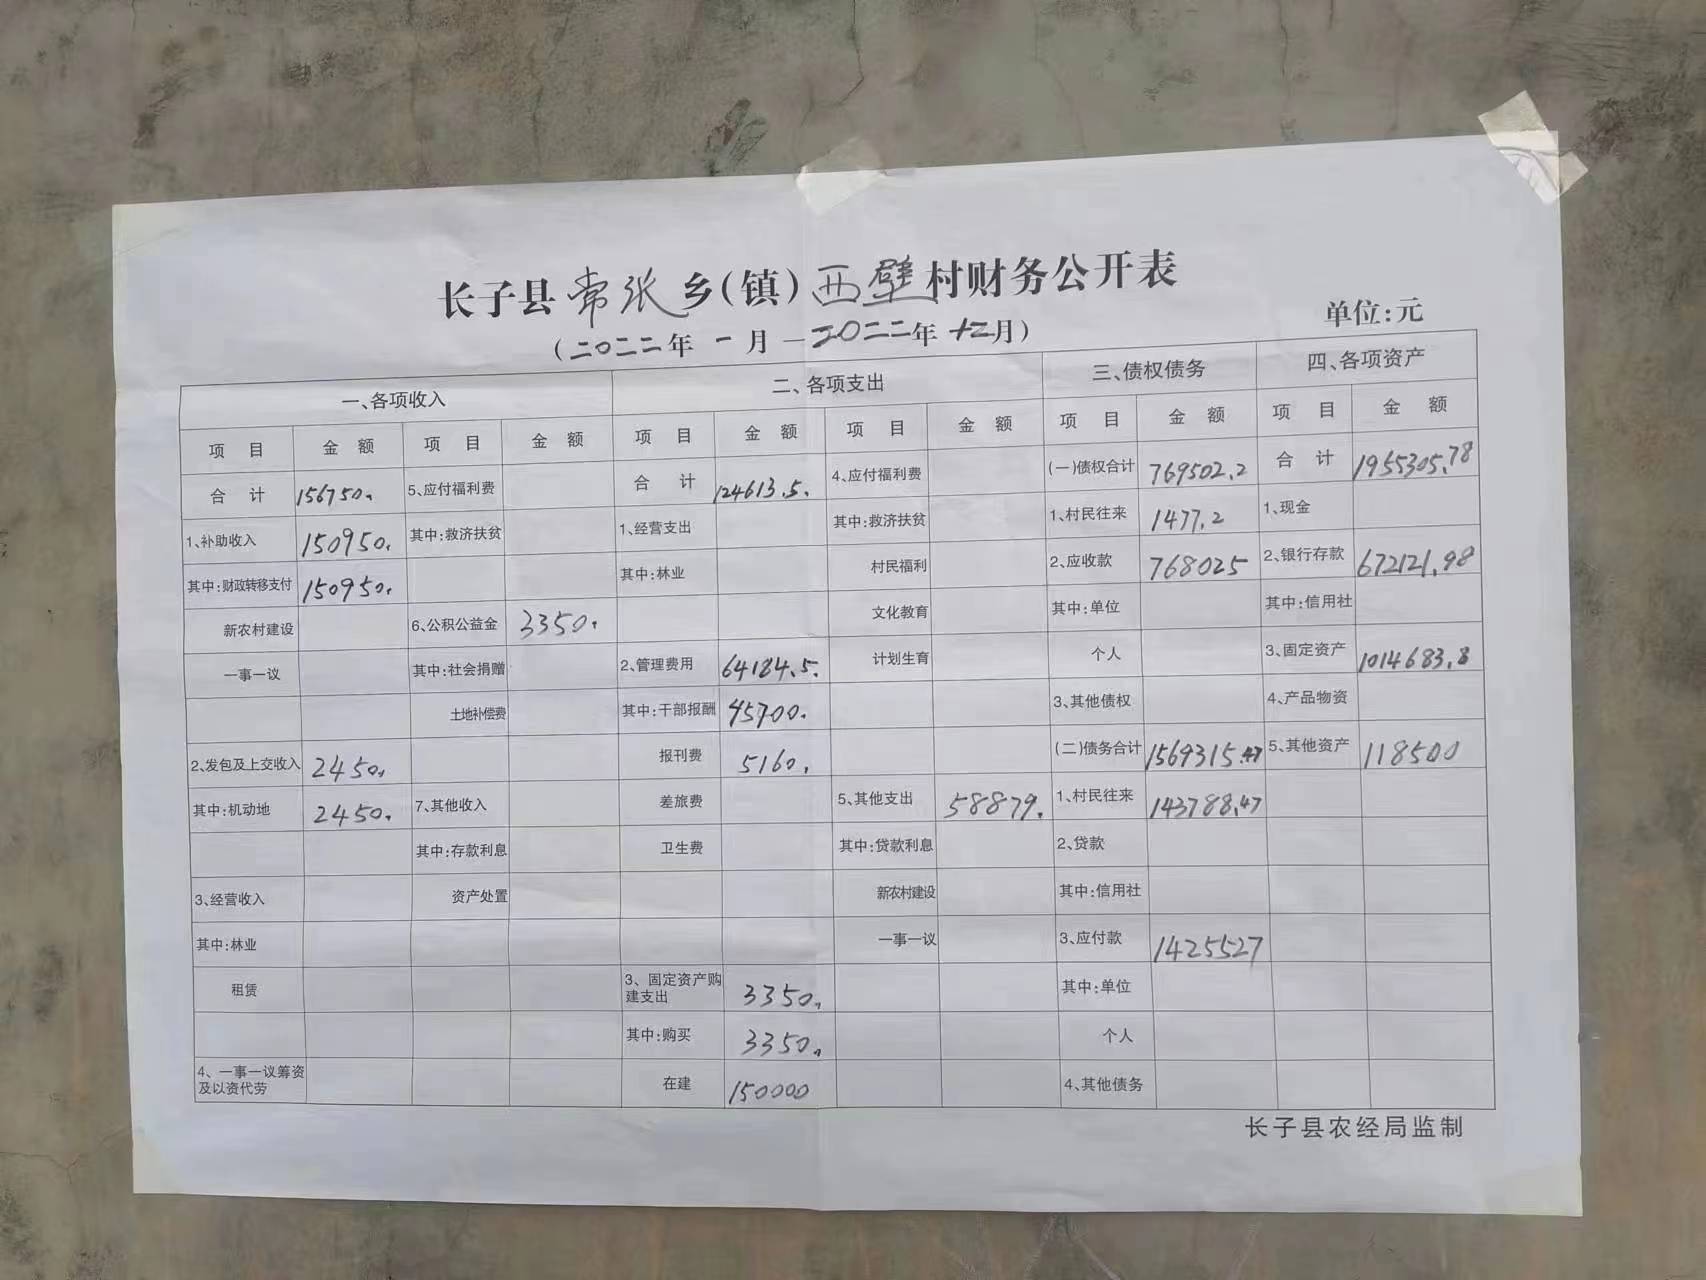 长子县常张乡(镇)西壁村财务公开表
单位:元
(二0二二年一月—2022年12月)
一、各项收入 二、各项支出 三、债权债务 四、各项资产
项目 金额 项目 金额 项目 金额 项目 金额 项目 金额 项目 金额
合计 156750. 5、应付福利费 合计 124613.5. 4、应付福利费 (一)债权合计 769502.2 合计 1955305.78
1、补助收入 150950. 其中:救济扶贫 1、经营支出 其中:救济扶贫 1、村民往来 1477.2 1、现金
其中:财政转移支付 150950. 其中:林业 村民福利 2、应收款 768025 2、银行存款 672121.98
新农村建设 6、公积公益金 3350. 文化教育 其中:单位 其中:信用社
一事一议 其中:社会捐赠 2、管理费用 64184.5. 计划生育 个人 3、固定资产 1014683.8
土地补偿费 其中:干部报酬 45700. 3、其他债权 4、产品物资
2、发包及上交收入 2450. 报刊费 5160. (二)债务合计 1569315.47 5、其他资产 118500
其中:机动地 2450. 7、其他收入 差旅费 5、其他支出 58879. 1、村民往来 143788.47
其中:存款利息 卫生费 其中:贷款利息 2、贷款
3、经营收入 资产处置 新农村建设 其中:信用社
其中:林业 一事一议 3、应付款 1425527
租赁 3、固定资产购建支出 3350. 其中:单位
其中:购买 3350. 个人
4、一事一议筹资及以资代劳 在建 150000 4、其他债务
长子县农经局监制